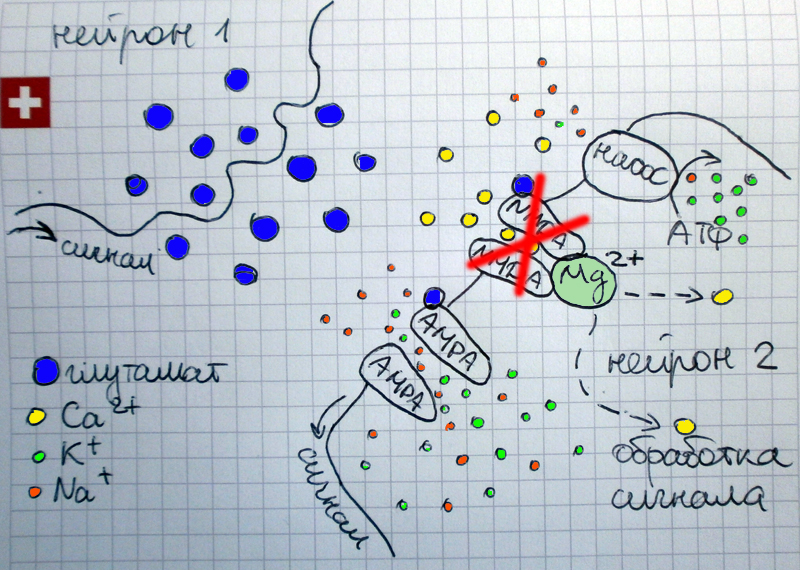 нейрон 1
насос
АТФ
сигнал
NMDA
NMDA
Mg 2+
AMPA
AMPA
нейрон 2
глутамат
Ca 2+
K+
Na+
сигнал
обработка
сигнала